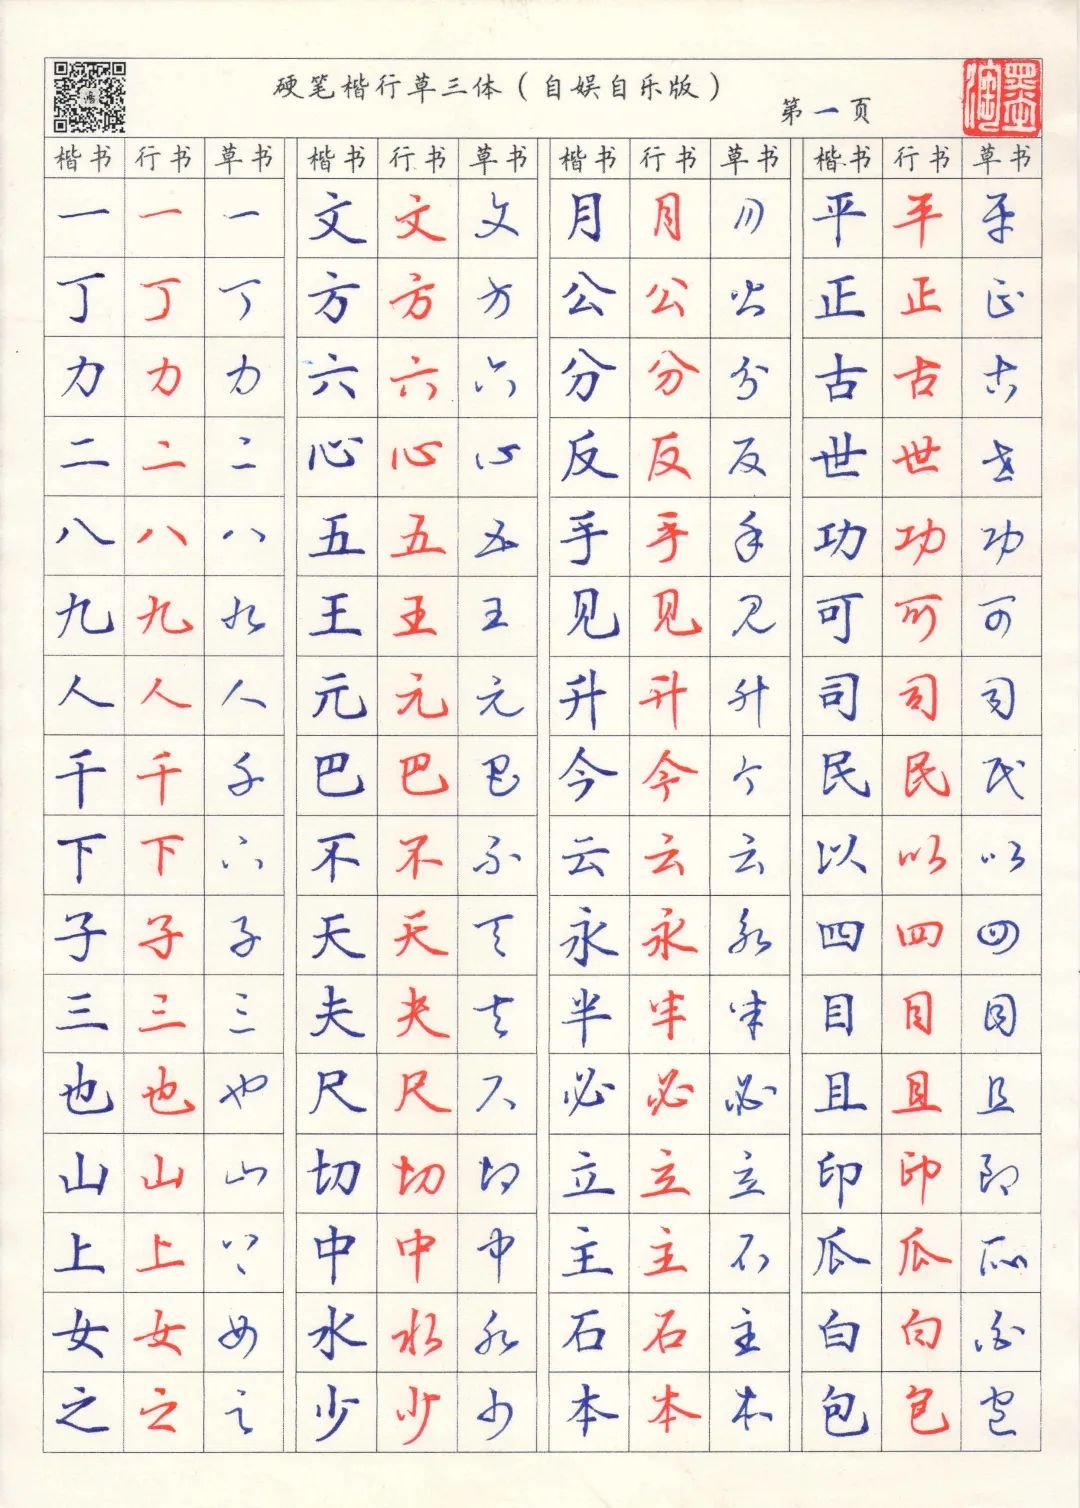 硬笔楷行草三体(自娱自乐版)
第一页
楷书 行书 草书 楷书 行书 草书 楷书 行书 草书 楷书 行书 草书
一 一 一 文 文 文 月 月 月 平 平 平
丁 丁 丁 方 方 方 公 公 公 正 正 正
力 力 力 六 六 六 分 分 分 古 古 古
二 二 二 心 心 心 反 反 反 世 世 世
八 八 八 五 五 五 手 手 手 功 功 功
九 九 九 王 王 王 见 见 见 可 可 可
人 人 人 元 元 元 升 升 升 司 司 司
千 千 千 巴 巴 巴 今 今 今 民 民 民
下 下 下 不 不 不 云 云 云 以 以 以
子 子 子 天 天 天 永 永 永 四 四 四
三 三 三 夫 夫 夫 半 半 半 目 目 目
也 也 也 尺 尺 尺 必 必 必 且 且 且
山 山 山 切 切 切 立 立 立 印 印 印
上 上 上 中 中 中 主 主 石 瓜 瓜 瓜
女 女 女 水 水 水 石 石 主 白 白 白
之 之 之 少 少 少 本 本 本 包 包 包